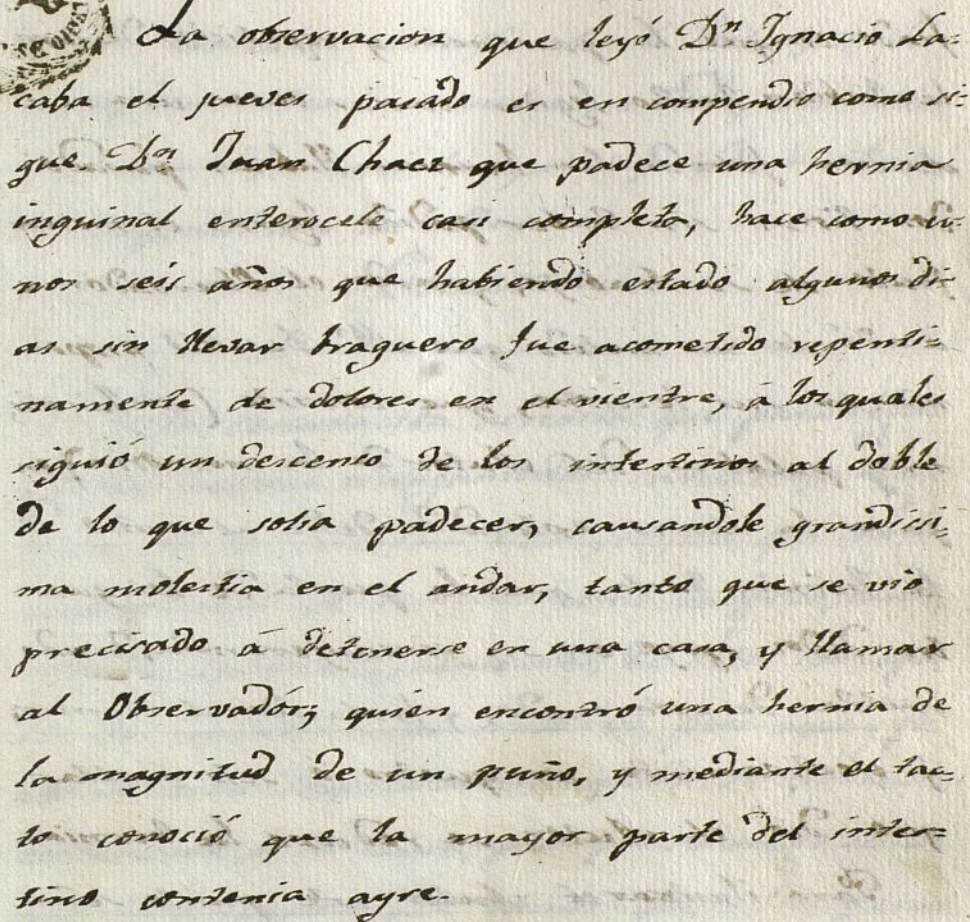 La observacion que leyó Dn Ignacio La=
caba el jueves pasado es en compendio como si=
gue. Dn Juan Chaez que padece una hernia
inguinal enterocele casi completo, hace como u=
nos seis años que habiendo estado algunos di=
as sin llevar braguero fue acometido repenti=
namente de dolores en el vientre, á los quales
siguió un descenso de los intestinos al doble
de lo que solia padecer, causandole grandissi=
ma molestia en el andar, tanto que se vio
precisado á detenerse en una casa, y llamar
al Observadór; quien encontró una hernia de
la magnitud de un puño, y mediante el tac=
to conoció que la mayor parte del intes=
tino contenia ayre.